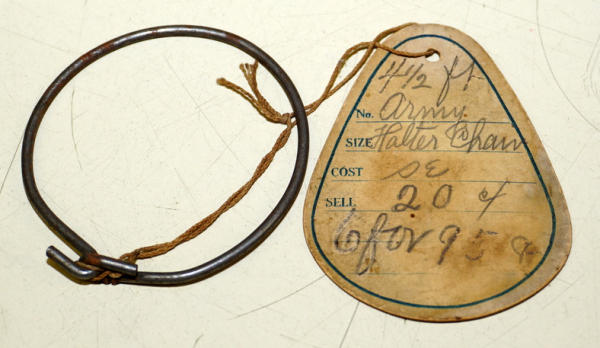 4½ ft
No. Army
SIZE Halter Chain
COST SE
SELL 20 ¢
6 for 95 ¢